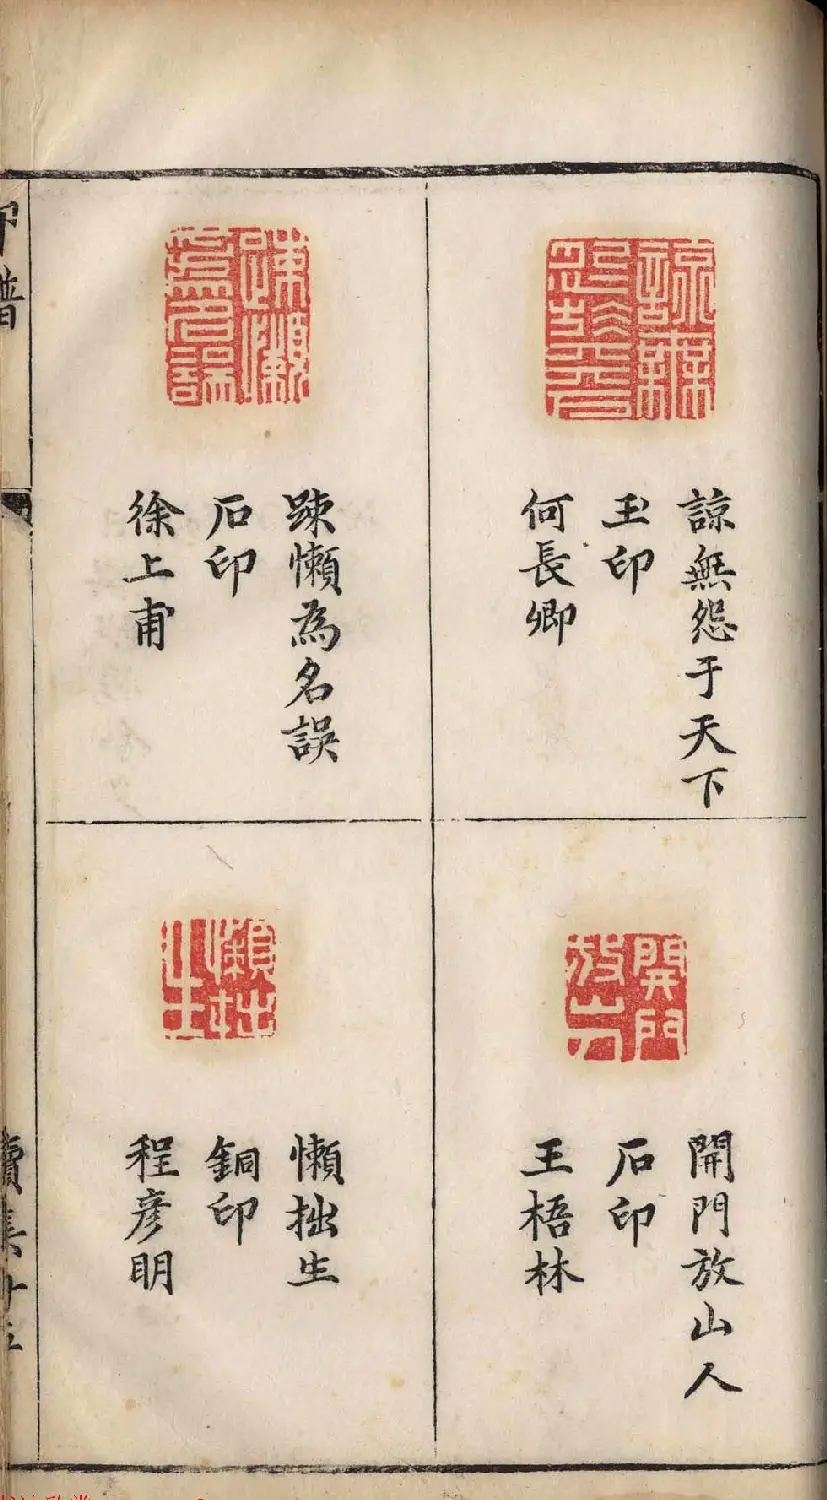 諒無怨于天下
玉印
何長卿
踈懶為名誤
石印
徐上甫
開門放山人
石印
王梧林
懶拙生
銅印
程彥明
印譜
續集